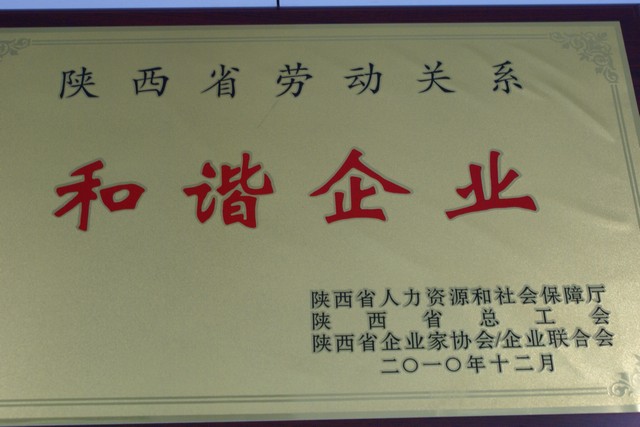 陕西省劳动关系
和谐企业
陕西省人力资源和社会保障厅
陕西省总工会
陕西省企业家协会/企业联合会
二〇一〇年十二月